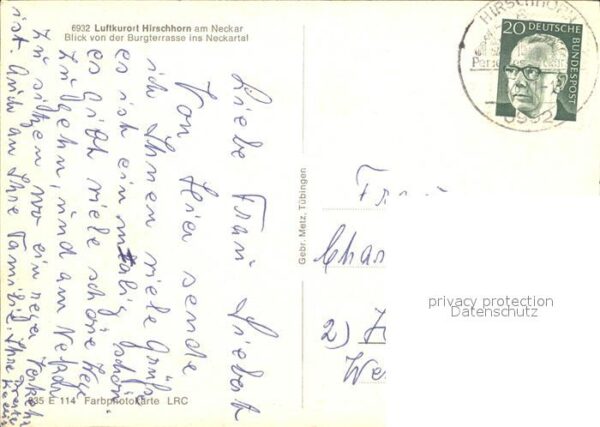 6932 Luftkurort Hirschhorn am Neckar
Blick von der Burgterrasse ins Neckartal
Liebe Frau Siebert
Von Hier sende
ich Ihnen viele Grüße
es ist ein schön
es gibt viele schöne Wege
zu gehn, und am Nekar
zu sitzen wo ein reger Verkehr
ist. Auch an Ihre Familie. Ihre
Gebr. Metz, Tübingen
HIRSCHHORN
6932
20 DEUTSCHE BUNDESPOST
Char
2)
privacy protection
Datenschutz
E 114 Farbphotokarte LRC